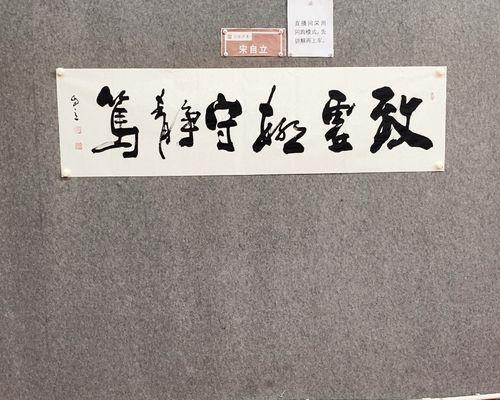 宋自立
直播间采用
购模式，先
讲解再上车。
致虚極守静篤
自立